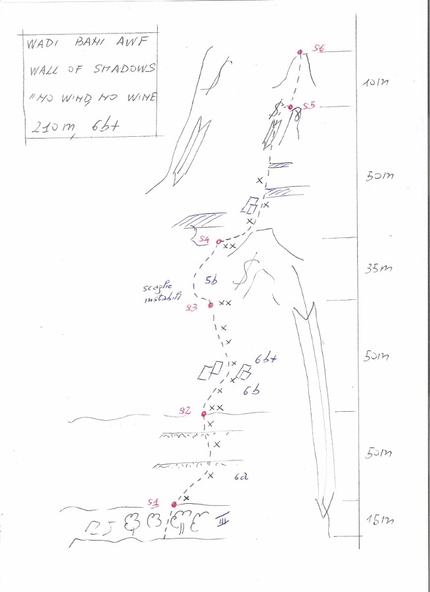 WADI BANI AWF
WALL OF SHADOWS
"NO WIND, NO WINE
210m, 6b+
S6
10m
S5
50m
S4
35m
5b
scaglie
instabili
S3
50m
6b+
6b
S2
50m
6a
S1
III
15m